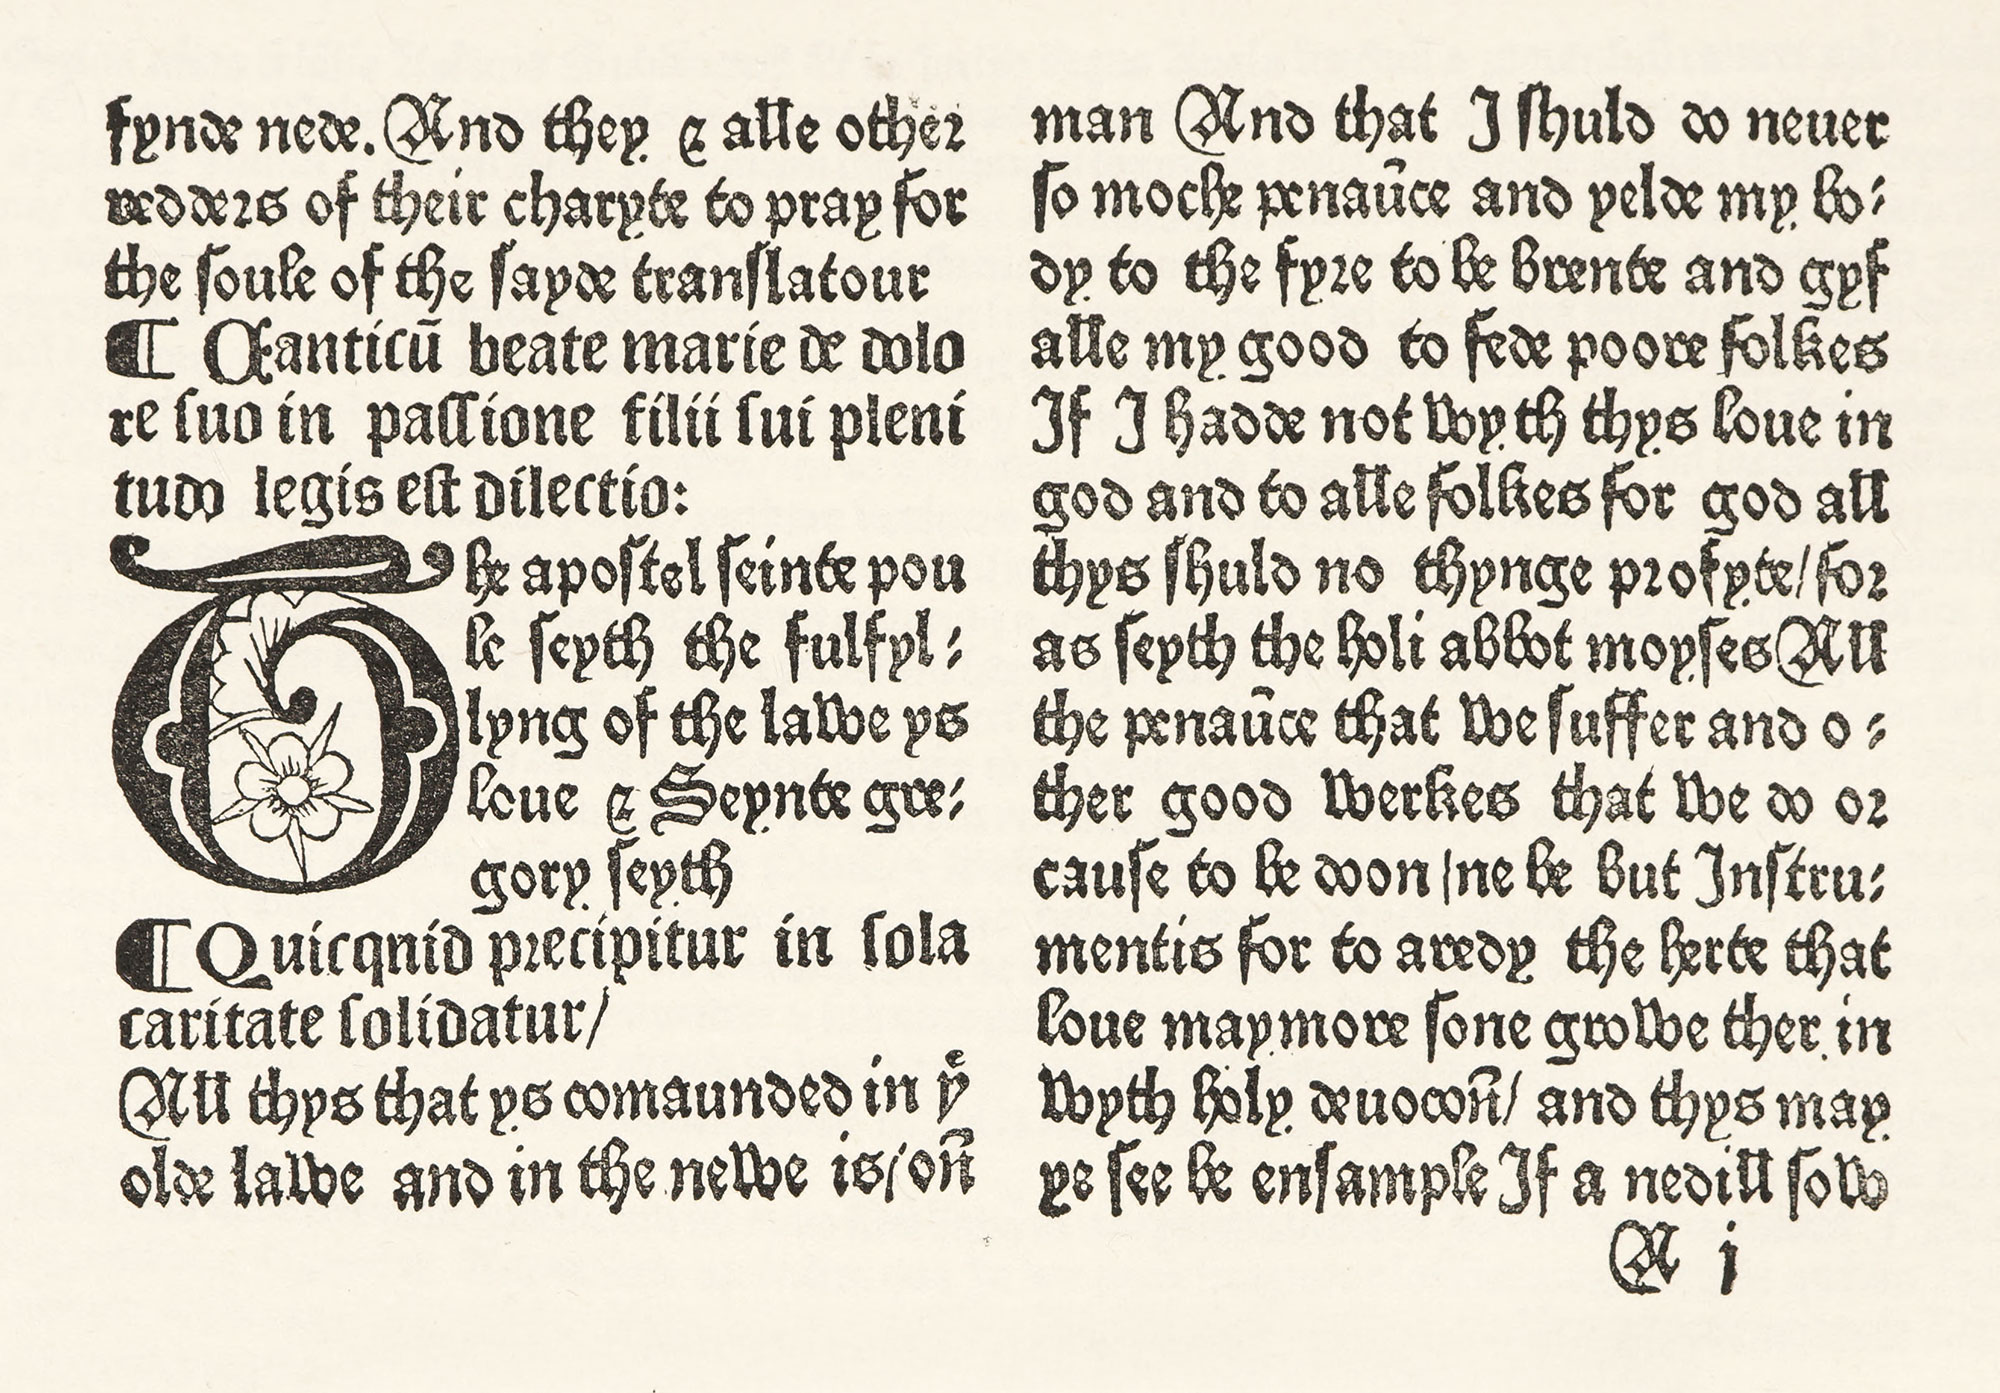 fynde nede. And they & alle other
redders of their charyte to pray for
the soule of the sayde translatour
¶ Canticū beate marie de dolo
re suo in passione filii sui pleni
tudo legis est dilectio:
The apostel seinte pou
le seyth the fulfyl⸗
lyng of the lawe ys
loue & Seynte gre⸗
gory seyth
¶ Quicqnid precipitur in sola
caritate solidatur/
All thys that ys comaunded in yͤ
olde lawe and in the newe is/on̄
man And that I shuld do neuer
so moche penaūce and yelde my bo⸗
dy to the fyre to be brente and gyf
alle my good to fede poore folkes
If I hadde not wyth thys loue in
god and to alle folkes for god all
thys shuld no thynge profyte/for
as seyth the holi abbot moyses All
the penaūce that we suffer and o⸗
ther good werkes that we do or
cause to be doon/ne be but Instru⸗
mentis for to aredy the herte that
loue may more sone growe ther in
wyth holy deuocon̄/ and thys may
ye see be ensample If a nedill sow
A i